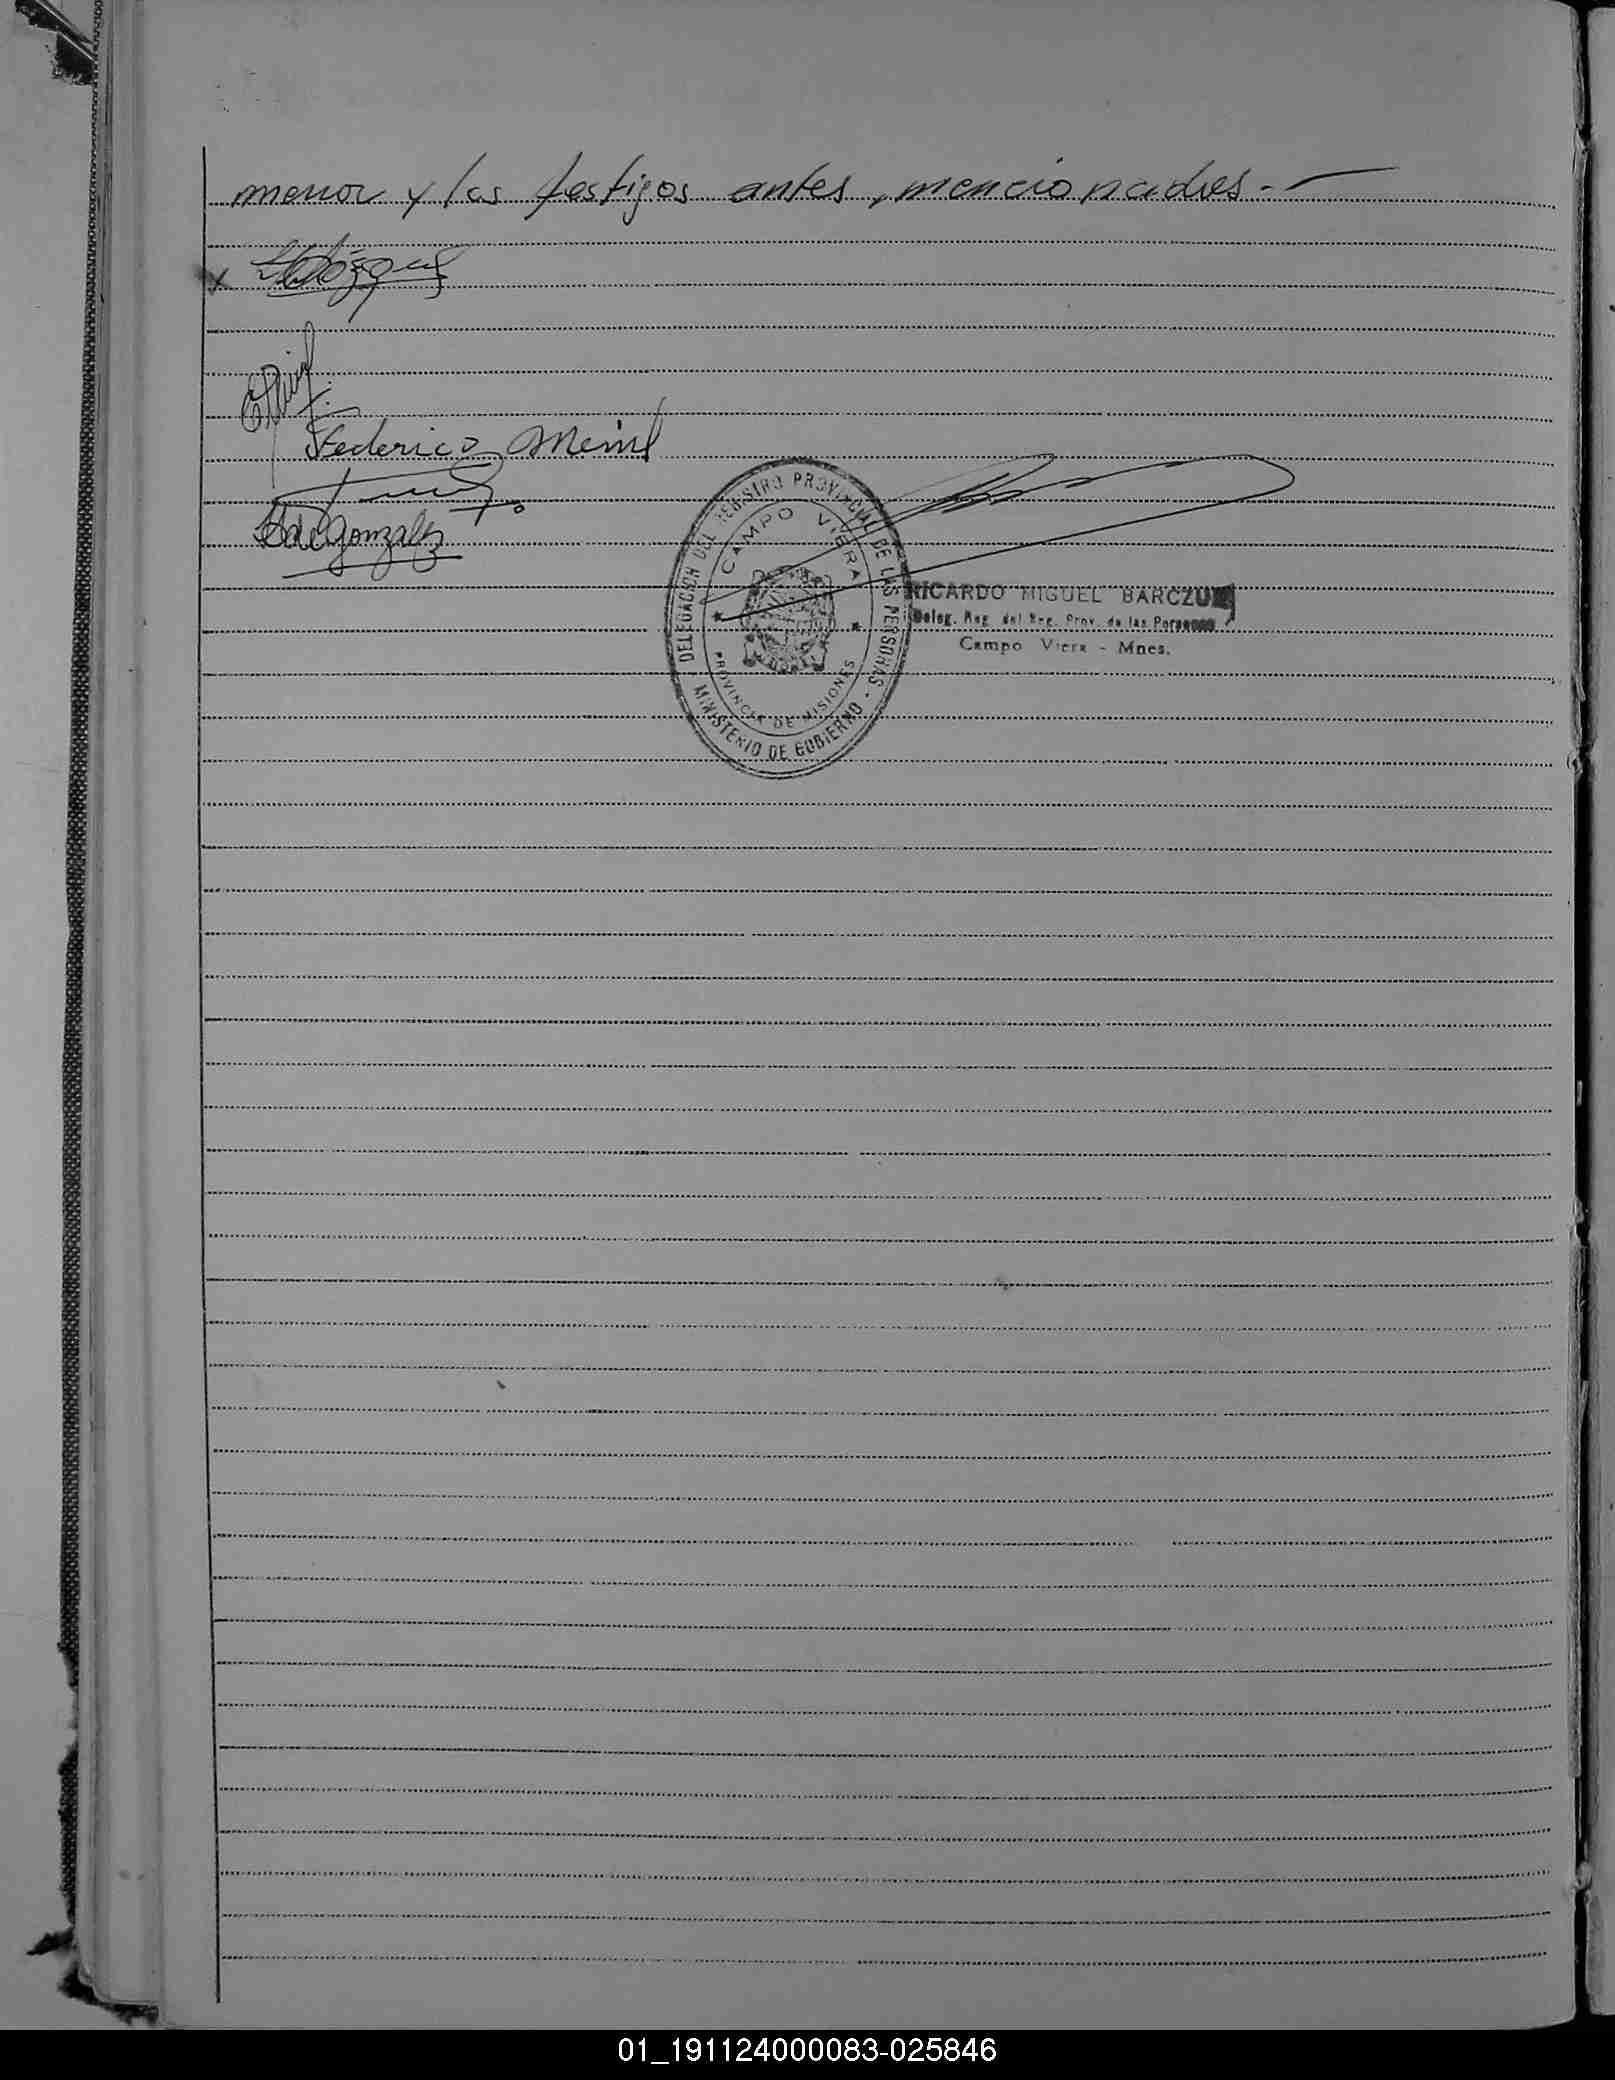 menor y los testigos antes, mencionados.-
Federico Meinl
H de Gonzalez
DELEGACION DEL REGISTRO PROVINCIAL DE LAS PERSONAS - MINISTERIO DE GOBIERNO
CAMPO VIERA
PROVINCIA DE MISIONES
RICARDO MIGUEL BARCZUK
Deleg. Reg. del Reg. Prov. de las Personas
Campo Viera - Mnes.
01_191124000083-025846